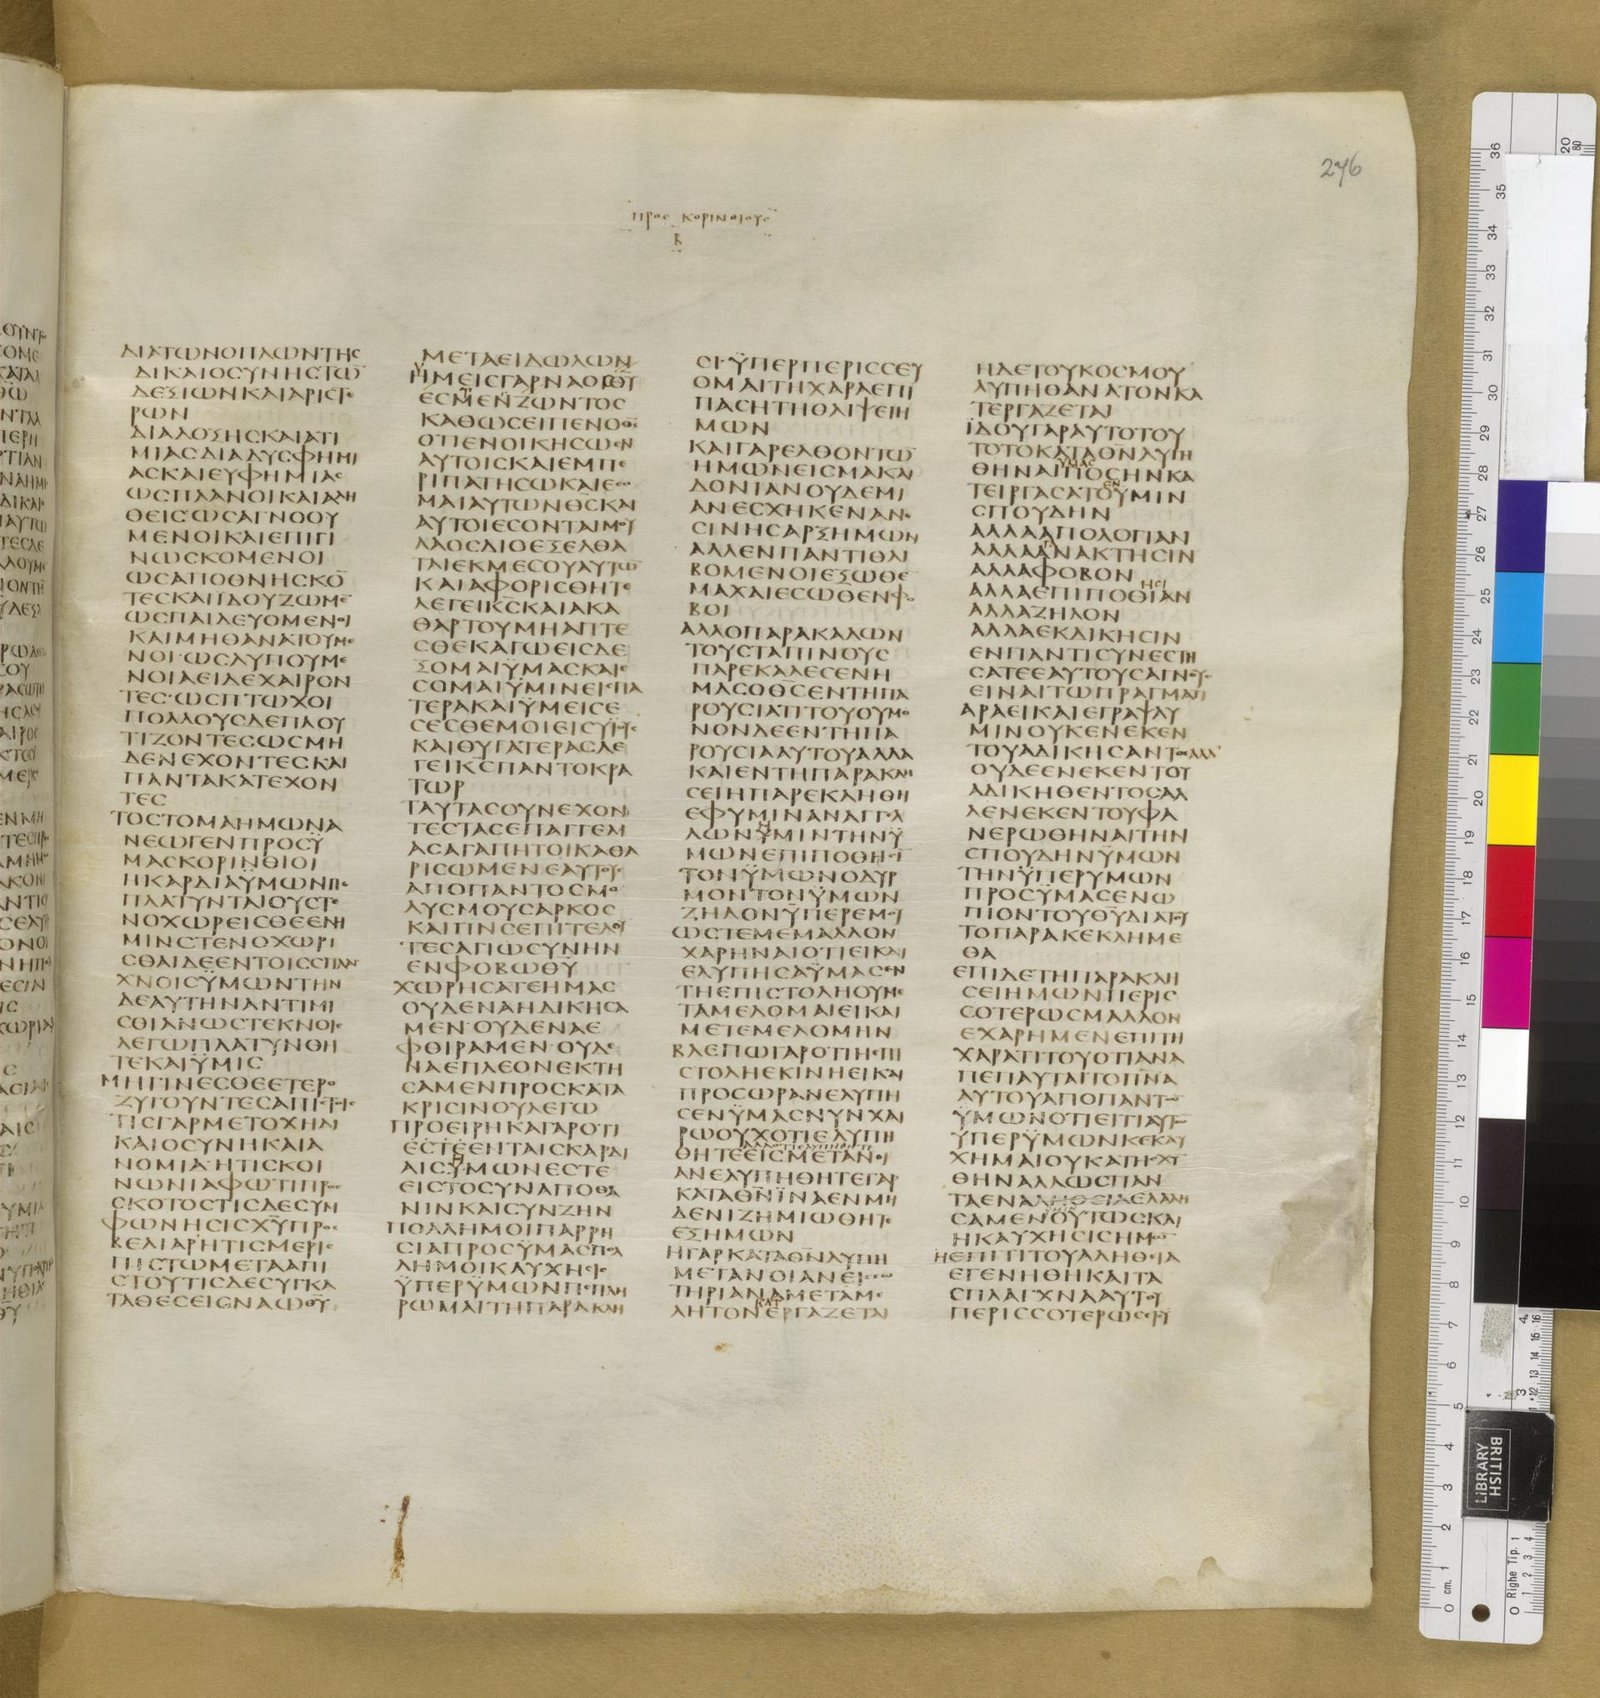 276
ΠΡΟΣ ΚΟΡΙΝΘΙΟΥΣ
Β
ΔΙΑΤΩΝΟΠΛΩΝΤΗϹ
ΔΙΚΑΙΟϹΥΝΗϹΤΩ̅
ΔΕΞΙΩΝΚΑΙΑΡΙϹΤΕ
ΡΩΝ
ΔΙΑΔΟΞΗϹΚΑΙΑΤΙ
ΜΙΑϹΔΙΑΔΥϹΦΗΜΙ
ΑϹΚΑΙΕΥΦΗΜΙΑϹ
ΩϹΠΛΑΝΟΙΚΑΙΑΛΗ
ΘΕΙϹ·ΩϹΑΓΝΟΟΥ
ΜΕΝΟΙΚΑΙΕΠΙΓΙ
ΝΩϹΚΟΜΕΝΟΙ
ΩϹΑΠΟΘΝΗϹΚΟ̅
ΤΕϹΚΑΙΙΔΟΥΖΩΜΕ
ΩϹΠΑΙΔΕΥΟΜΕΝΟΙ
ΚΑΙΜΗΘΑΝΑΤΟΥΜΕ
ΝΟΙ·ΩϹΛΥΠΟΥΜΕ
ΝΟΙΑΕΙΔΕΧΑΙΡΟΝ
ΤΕϹ·ΩϹΠΤΩΧΟΙ
ΠΟΛΛΟΥϹΔΕΠΛΟΥ
ΤΙΖΟΝΤΕϹΩϹΜΗ
ΔΕΝΕΧΟΝΤΕϹΚΑΙ
ΠΑΝΤΑΚΑΤΕΧΟΝ
ΤΕϹ
ΤΟϹΤΟΜΑΗΜΩΝΑ
ΝΕΩΓΕΝΠΡΟϹΫ
ΜΑϹΚΟΡΙΝΘΙΟΙ
ΗΚΑΡΔΙΑΫΜΩΝΠΕ
ΠΛΑΤΥΝΤΑΙΟΥϹΤΕ
ΝΟΧΩΡΕΙϹΘΕΕΝΗ
ΜΙΝϹΤΕΝΟΧΩΡΙ
ϹΘΑΙΔΕΕΝΤΟΙϹϹΠΛΑΓ
ΧΝΟΙϹΫΜΩΝΤΗΝ
ΔΕΑΥΤΗΝΑΝΤΙΜΙ
ϹΘΙΑΝΩϹΤΕΚΝΟΙϹ
ΛΕΓΩΠΛΑΤΥΝΘΗ
ΤΕΚΑΙΫΜΙϹ
ΜΗΓΙΝΕϹΘΕΕΤΕΡΟ
ΖΥΓΟΥΝΤΕϹΑΠΙϹΤΟΙϹ
ΤΙϹΓΑΡΜΕΤΟΧΗΔΙ
ΚΑΙΟϹΥΝΗΚΑΙΑ
ΝΟΜΙΑ·ΗΤΙϹΚΟΙ
ΝΩΝΙΑΦΩΤΙΠΡΟϹ
ϹΚΟΤΟϹΤΙϹΔΕϹΥΜ
ΦΩΝΗϹΙϹΧ̅Υ̅ΠΡΟϹ
ΒΕΛΙΑΡΗΤΙϹΜΕΡΙϹ
ΠΙϹΤΩΜΕΤΑΑΠΙ
ϹΤΟΥΤΙϹΔΕϹΥΓΚΑ
ΤΑΘΕϹΕΙϹΝΑΩΘ̅Υ̅
ΜΕΤΑΕΙΔΩΛΩΝ
ΗΜΕΙϹΓΑΡΝΑΟϹΘ̅Υ̅
ΕϹΜΕΝΖΩΝΤΟϹ
ΚΑΘΩϹΕΙΠΕΝΟΘ̅Ϲ̅
ΟΤΙΕΝΟΙΚΗϹΩΕΝ
ΑΥΤΟΙϹΚΑΙΕΜΠΕ
ΡΙΠΑΤΗϹΩΚΑΙΕϹΟ
ΜΑΙΑΥΤΩΝΘ̅Ϲ̅ΚΑΙ
ΑΥΤΟΙΕϹΟΝΤΑΙΜΟΥ
ΛΑΟϹΔΙΟΕΞΕΛΘΑ
ΤΑΙΕΚΜΕϹΟΥΑΥΤΩ̅
ΚΑΙΑΦΟΡΙϹΘΗΤΕ
ΛΕΓΕΙΚ̅Ϲ̅ΚΑΙΑΚΑ
ΘΑΡΤΟΥΜΗΑΠΤΕ
ϹΘΕΚΑΓΩΕΙϹΔΕ
ΞΟΜΑΙΫΜΑϹΚΑΙΕ
ϹΟΜΑΙΫΜΙΝΕΙϹΠΑ
ΤΕΡΑΚΑΙΫΜΕΙϹΕ
ϹΕϹΘΕΜΟΙΕΙϹΥΙΟΥϹ
ΚΑΙΘΥΓΑΤΕΡΑϹΛΕ
ΓΕΙΚ̅Ϲ̅ΠΑΝΤΟΚΡΑ
ΤΩΡ
ΤΑΥΤΑϹΟΥΝΕΧΟΝ
ΤΕϹΤΑϹΕΠΑΓΓΕΛΙ
ΑϹΑΓΑΠΗΤΟΙΚΑΘΑ
ΡΙϹΩΜΕΝΕΑΥΤΟΥϹ
ΑΠΟΠΑΝΤΟϹΜΟ
ΛΥϹΜΟΥϹΑΡΚΟϹ
ΚΑΙΠ̅Ν̅Ϲ̅ΕΠΙΤΕΛΟΥ̅
ΤΕϹΑΓΙΩϹΥΝΗΝ
ΕΝΦΟΒΩΘ̅Υ̅
ΧΩΡΗϹΑΤΕΗΜΑϹ
ΟΥΔΕΝΑΗΔΙΚΗϹΑ
ΜΕΝ·ΟΥΔΕΝΑΕ
ΦΘΙΡΑΜΕΝ·ΟΥΔΕ
ΝΑΕΠΛΕΟΝΕΚΤΗ
ϹΑΜΕΝΠΡΟϹΚΑΤΑ
ΚΡΙϹΙΝΟΥΛΕΓΩ
ΠΡΟΕΙΡΗΚΑΓΑΡΟΤΙ
ΕϹΤΕΕΝΤΑΙϹΚΑΡΔΙ
ΑΙϹΫΜΩΝΕϹΤΕ
ΕΙϹΤΟϹΥΝΑΠΟΘΑ
ΝΙΝΚΑΙϹΥΝΖΗΝ
ΠΟΛΛΗΜΟΙΠΑΡΡΗ
ϹΙΑΠΡΟϹΫΜΑϹΠΟΛ
ΛΗΜΟΙΚΑΥΧΗϹΙϹ
ΫΠΕΡΫΜΩΝΠΕΠΛΗ
ΡΩΜΑΙΤΗΠΑΡΑΚΛΗ
ϹΙ·ΫΠΕΡΠΕΡΙϹϹΕΥ
ΟΜΑΙΤΗΧΑΡΑΕΠΙ
ΠΑϹΗΤΗΘΛΙΨΕΙΗ
ΜΩΝ
ΚΑΙΓΑΡΕΛΘΟΝΤΩ̅
ΗΜΩΝΕΙϹΜΑΚΑΙ
ΔΟΝΙΑΝΟΥΔΕΜΙ
ΑΝΕϹΧΗΚΕΝΑΝΕ
ϹΙΝΗϹΑΡΞΗΜΩΝ
ΑΛΛΕΝΠΑΝΤΙΘΛΙ
ΒΟΜΕΝΟΙΕΞΩΘΕ
ΜΑΧΑΙΕϹΩΘΕΝΦΟ
ΒΟΙ
ΑΛΛΟΠΑΡΑΚΑΛΩΝ
ΤΟΥϹΤΑΠΙΝΟΥϹ
ΠΑΡΕΚΑΛΕϹΕΝΗ
ΜΑϹΟΘ̅Ϲ̅ΕΝΤΗΠΑ
ΡΟΥϹΙΑΤΙΤΟΥΟΥΜΟ
ΝΟΝΔΕΕΝΤΗΠΑ
ΡΟΥϹΙΑΑΥΤΟΥΑΛΛΑ
ΚΑΙΕΝΤΗΠΑΡΑΚΛΗ
ϹΕΙΗΠΑΡΕΚΛΗΘΗ
ΕΦΥΜΙΝΑΝΑΓΓΕΛ
ΛΩΝΫΜΙΝΤΗΝΫ
ΜΩΝΕΠΙΠΟΘΗϹΙ
ΤΟΝΫΜΩΝΟΔΥΡ
ΜΟΝΤΟΝΫΜΩΝ
ΖΗΛΟΝΫΠΕΡΕΜΟΥ
ΩϹΤΕΜΕΜΑΛΛΟΝ
ΧΑΡΗΝΑΙΟΤΙΕΙΚΑΙ
ΕΛΥΠΗϹΑΫΜΑϹΕΝ
ΤΗΕΠΙϹΤΟΛΗΟΥΜΕ
ΤΑΜΕΛΟΜΑΙΕΙΚΑΙ
ΜΕΤΕΜΕΛΟΜΗΝ
ΒΛΕΠΩΓΑΡΟΤΙΗΕΠΙ
ϹΤΟΛΗΕΚΙΝΗΕΙΚΑΙ
ΠΡΟϹΩΡΑΝΕΛΥΠΗ
ϹΕΝΫΜΑϹΝΥΝΧΑΙ
ΡΩΟΥΧΟΤΙΕΛΥΠΗ
ΘΗΤΕΕΙϹΜΕΤΑΝΟΙ
ΑΝΕΛΥΠΗΘΗΤΕΓΑΡ
ΚΑΤΑΘ̅Ν̅ΪΝΑΕΝΜΗ
ΔΕΝΙΖΗΜΙΩΘΗΤΕ
ΕΞΗΜΩΝ
ΗΓΑΡΚΑΤΑΘ̅Ν̅ΛΥΠΗ
ΜΕΤΑΝΟΙΑΝΕΙϹϹΩ
ΤΗΡΙΑΝΑΜΕΤΑΜΕ
ΛΗΤΟΝΕΡΓΑΖΕΤΑΙ
ΗΔΕΤΟΥΚΟϹΜΟΥ
ΛΥΠΗΘΑΝΑΤΟΝΚΑ
ΤΕΡΓΑΖΕΤΑΙ
ΙΔΟΥΓΑΡΑΥΤΟΤΟΥ
ΤΟΤΟΚΑΤΑΘ̅Ν̅ΛΥΠΗ
ΘΗΝΑΙΠΟϹΗΝΚΑ
ΤΕΙΡΓΑϹΑΤΟΫΜΙΝ
ϹΠΟΥΔΗΝ
ΑΛΛΑΑΠΟΛΟΓΙΑΝ
ΑΛΛΑΑΝΑΚΤΗϹΙΝ
ΑΛΛΑΦΟΒΟΝ
ΑΛΛΑΕΠΙΠΟΘΙΑΝ
ΑΛΛΑΖΗΛΟΝ
ΑΛΛΑΕΚΔΙΚΗϹΙΝ
ΕΝΠΑΝΤΙϹΥΝΕϹΤΗ
ϹΑΤΕΕΑΥΤΟΥϹΑΓΝΟΥϹ
ΕΙΝΑΙΤΩΠΡΑΓΜΑΤΙ
ΑΡΑΕΙΚΑΙΕΓΡΑΨΑΥ
ΜΙΝΟΥΚΕΝΕΚΕΝ
ΤΟΥΑΔΙΚΗϹΑΝΤΟϹΑΛΛ
ΟΥΔΕΕΝΕΚΕΝΤΟΥ
ΑΔΙΚΗΘΕΝΤΟϹΑΛ
ΛΕΝΕΚΕΝΤΟΥΦΑ
ΝΕΡΩΘΗΝΑΙΤΗΝ
ϹΠΟΥΔΗΝΫΜΩΝ
ΤΗΝΫΠΕΡΥΜΩΝ
ΠΡΟϹΫΜΑϹΕΝΩ
ΠΙΟΝΤΟΥΘ̅Υ̅ΔΙΑΤΟΥ
ΤΟΠΑΡΑΚΕΚΛΗΜΕ
ΘΑ
ΕΠΙΔΕΤΗΠΑΡΑΚΛΗ
ϹΕΙΗΜΩΝΠΕΡΙϹ
ϹΟΤΕΡΩϹΜΑΛΛΟΝ
ΕΧΑΡΗΜΕΝΕΠΙΤΗ
ΧΑΡΑΤΙΤΟΥΟΤΙΑΝΑ
ΠΕΠΑΥΤΑΙΤΟΠ̅Ν̅Α̅
ΑΥΤΟΥΑΠΟΠΑΝΤΩ̅
ΫΜΩΝΟΤΙΕΙΤΙΑΥΤΩ
ΫΠΕΡΫΜΩΝΚΕΚΑΥ
ΧΗΜΑΙΟΥΚΑΤΗϹΧΥ
ΘΗΝΑΛΛΩϹΠΑΝ
ΤΑΕΝΑΛΗΘΕΙΑΕΛΑΛΗ
ϹΑΜΕΝΟΥΤΩϹΚΑΙ
ΗΚΑΥΧΗϹΙϹΗΜΩ̅
ΗΕΠΙΤΙΤΟΥΑΛΗΘΕΙΑ
ΕΓΕΝΗΘΗΚΑΙΤΑ
ϹΠΛΑΓΧΝΑΑΥΤΟΥ
ΠΕΡΙϹϹΟΤΕΡΩϹΕΙϹΥ